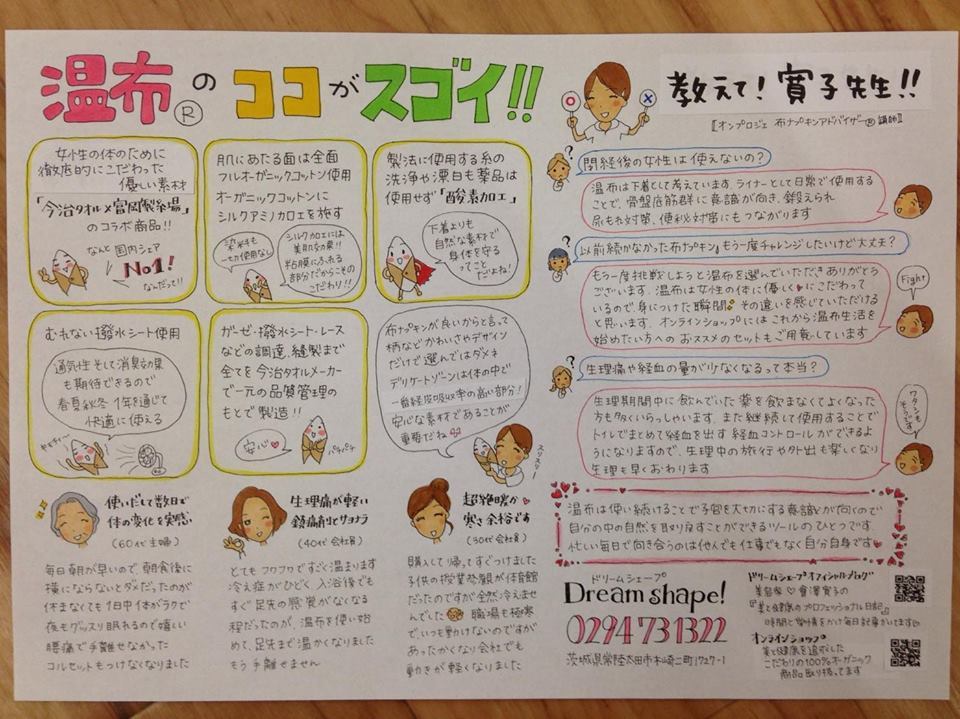 温布®のココがスゴイ!!
女性の体のために
徹底的にこだわった
優しい素材
「今治タオル×富岡製糸場」
のコラボ商品!!
なんと国内シェア
No1!
なんだって!!
肌にあたる面は全面
フルオーガニックコットン使用
オーガニックコットンに
シルクアミノカロエを施す
染料も
一切使用なし
シルクカロエには
美肌効果!!
粘膜にふれる
部分だからこその
こだわり!!
製法に使用する糸の
洗浄や漂白も薬品は
使用せず「酵素カロエ」
下着よりも
自然な素材で
身体を守る
ってこと
だよね!
むれない撥水シート使用
通気性そして消臭効果
も期待できるので
春夏秋冬1年を通じて
快適に使える
ガーゼ・撥水シート・レース
などの調達、縫製まで
全てを今治タオルメーカー
で一元の品質管理の
もとで製造!!
安心♥
パチパチ
布ナプキンが良いからと言って
柄などかわいさやデザイン
だけで選んではダメネ
デリケートゾーンは体の中で
一番経皮吸収率の高い部分!
安心な素材であることが
重要だね
スリスリ
教えて!寛子先生!!
〖オンプロジェ 布ナプキンアドバイザー®講師〗
閉経後の女性は使えないの?
温布は下着として考えています。ライナーとして日常で使用する
ことで、骨盤底筋群に意識が向き、鍛えられ
尿もれ対策、便秘対策にもつながります
以前続かなかった布ナプキン。もう一度チャレンジしたいけど大丈夫?
もう一度挑戦しようと温布を選んでいただきありがとう
ございます。温布は女性の体に優しく♥にこだわって
いるので身につけた瞬間 その違いを感じていただける
と思います。オンラインショップにはこれから温布生活を
始めたい方へのおススメのセットもご用意しています
Fight
生理痛や経血の量が少なくなるって本当?
生理期間中に飲んでいた薬を飲まなくてよくなった
方も多くいらっしゃいます。また継続して使用することで
トイレでまとめて経血を出す経血コントロールができるよ
うになりますので、生理中の旅行や外出も楽しくなり
生理も早くおわります
ワタシも
そうです
温布は使い続けることで子宮を大切にする意識が向くので
自分の中の自然を取り戻すことができるツールのひとつです
忙しい毎日で向き合うのは他人でも仕事でもなく自分自身です
使いだして数日で
体の変化を実感。
(60代主婦)
毎日朝が早いので、朝食後に
横にならないとダメだったのが
休まなくても1日中体がラクで
夜もグッスリ眠れるので嬉しい
腰痛で手離せなかった
コルセットもつけなくなりました
生理痛が軽い
鎮痛剤にサヨナラ
(40代会社員)
とてもフワフワですごく温まります
冷え症がひどく入浴後でも
すぐ足先の感覚がなくなる
程だったのが、温布を使い始
めて、足先まで温かくなりました
もう手離せません
超絶暖か
寒さ余裕です
(30代会社員)
購入して帰ってすぐつけました
子供の授業参観が体育館
だったのですが全然冷えませ
んでした 職場も極寒
で、いつも動けないのですが
あったかくなり会社でも
動きが軽くなりました
ドリームシェープ
Dream shape!
0294731322
茨城県常陸太田市木崎二町1727-1
ドリームシェープオフィシャルブログ
美容家♥會澤寛子の
『美と健康のプロフェッショナル日記』
時間と愛情をかけ毎日記事かいています
オンラインショップ
美と健康を追求した
こだわりの100%オーガニック
商品取り扱ってます